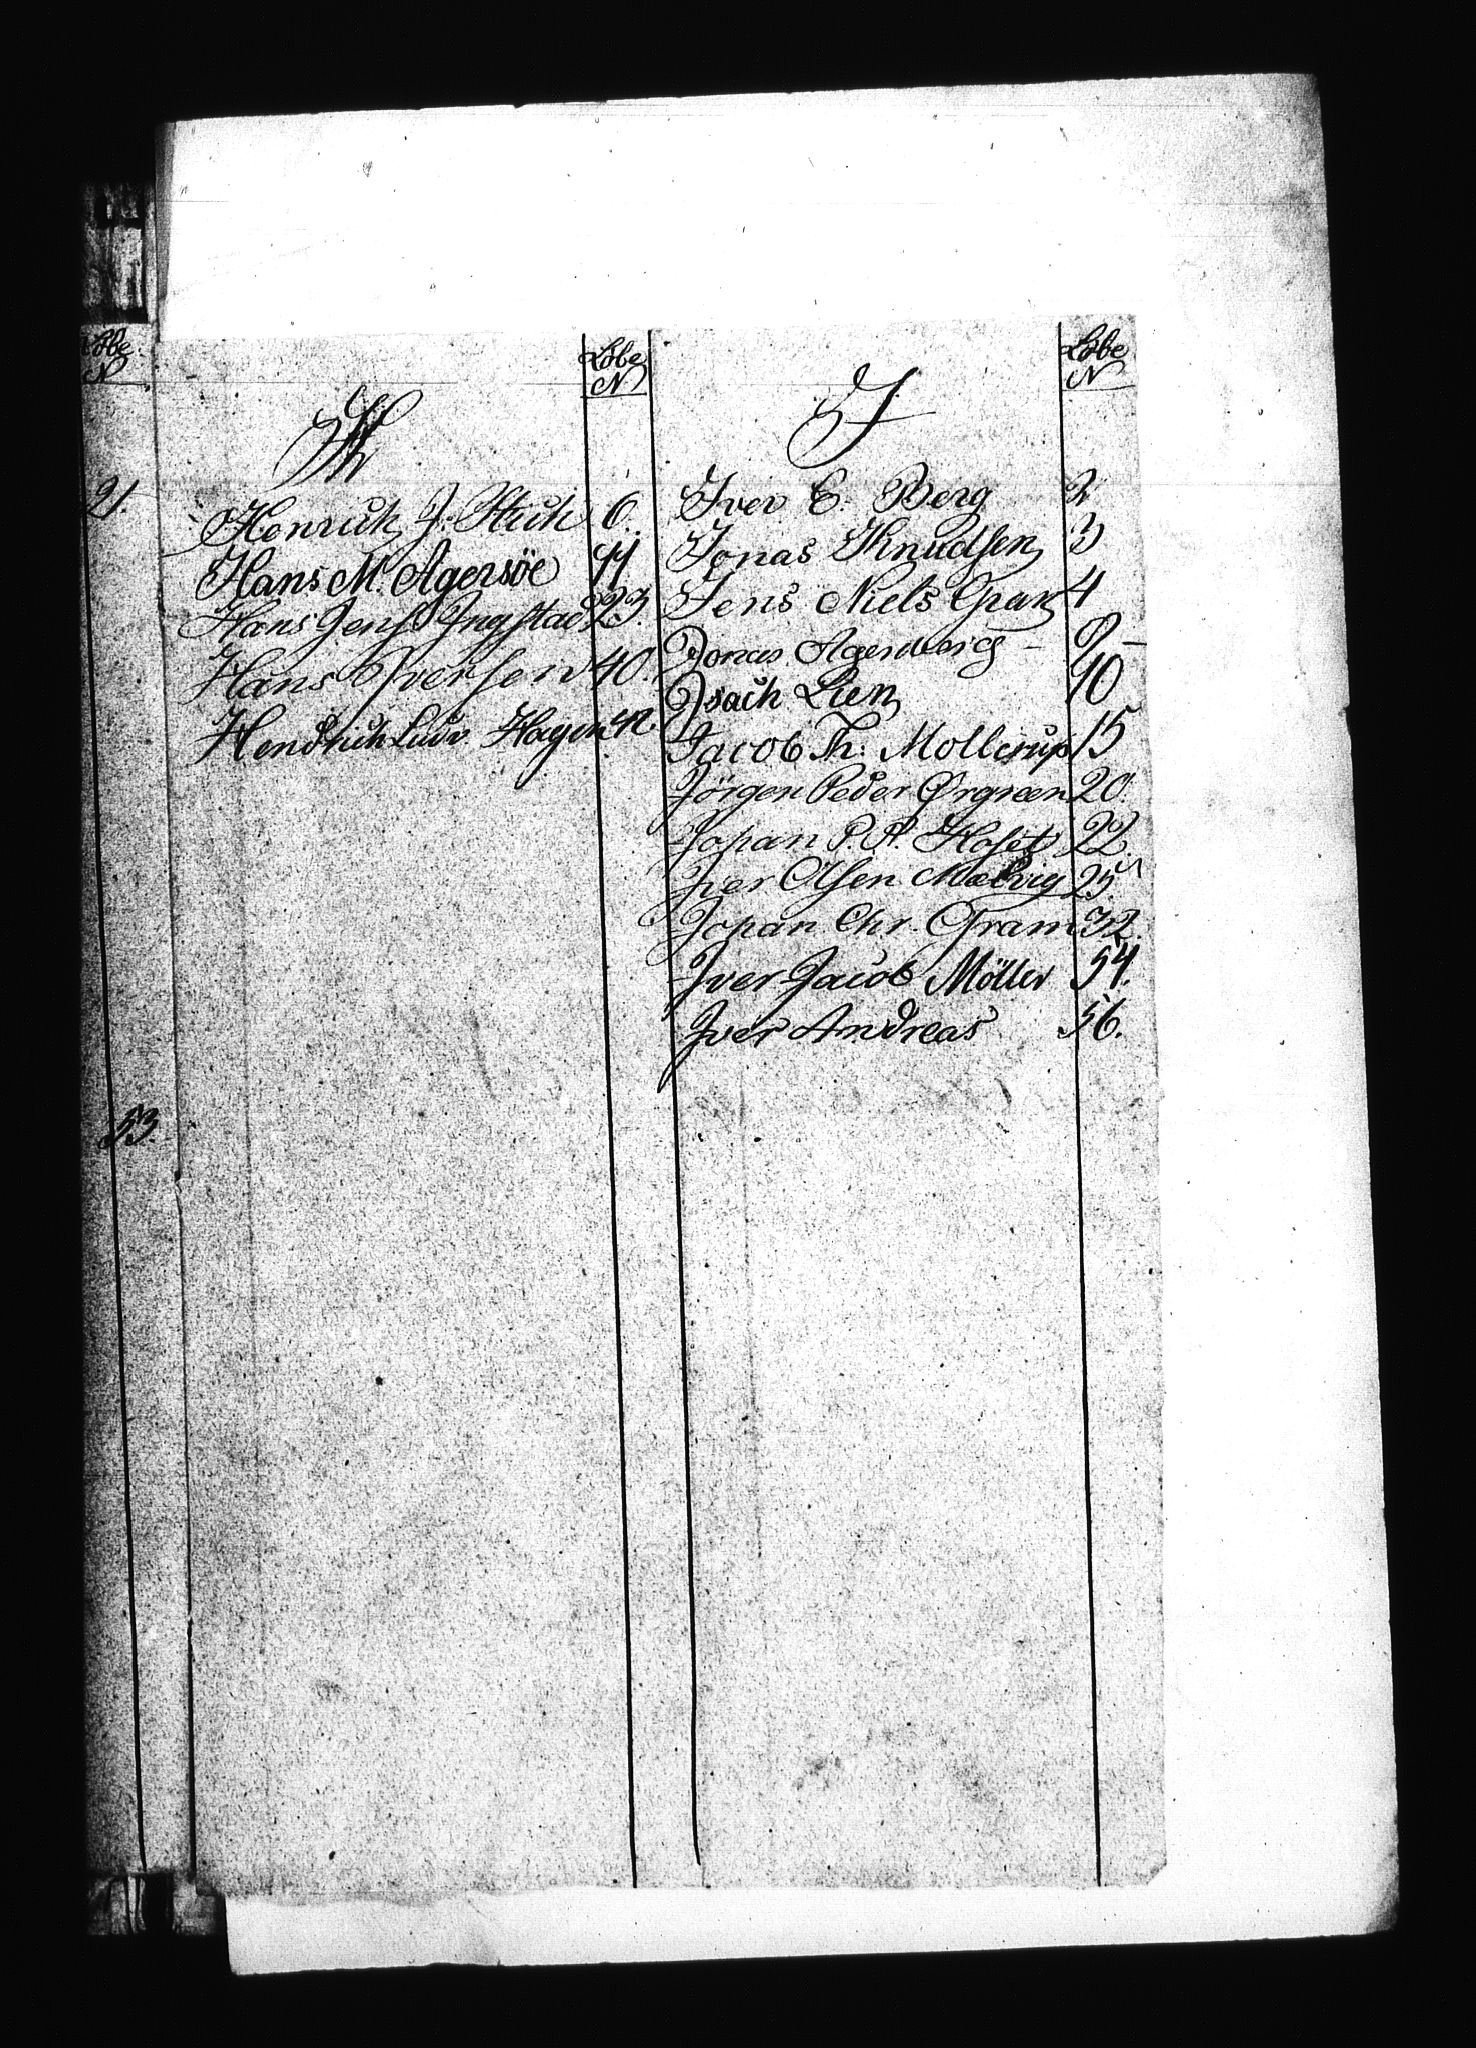 Löbe
N
21.
53
Löbe
N
H
Henrich J. Stuh 6.
Hans M. Agersöe 11
Hans Jens Ingstad 23.
Hans Iversen 40.
Hendrich Ludv. Hagen 42.
Löbe
N
I
Iver E. Berg 2
Jonas Knudsen 3
Jens Niels Gran 4
Jonas Agerberg - 8 -
Isach Lien 10
Jacob Th: Mollerup 15
Jörgen Peder Ørgreen 20.
Johan P. A. Hoset 22.
Iver Olsen Mælvig 25.
Johan Chr. Tram 32.
Iver Jacob Möller 54.
Iver Andreas 56.